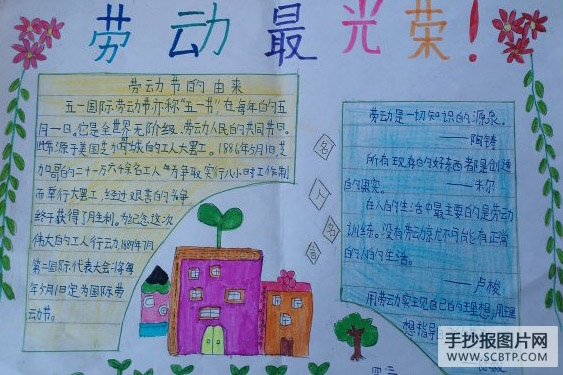 劳动最光荣!
劳动节的由来
五一国际劳动节亦称"五一节",在每年的五
月一日。它是全世界无阶级、劳动人民的共同节日。
此节源于美国芝加哥城的工人大罢工。1886年5月1日,芝
加哥的二十一万六千余名工人为争取实行八小时工作制
而举行大罢工,经过艰苦的斗争
终于获得了胜利。为纪念这次
伟大的工人行动,1889年7月
第二国际代表大会将每
年5月1日定为国际劳
动节。
名
人
名
言
劳动是一切知识的源泉。
——陶铸
所有现存的好东西都是创造
的果实。 ——米尔
在人的生活中最主要的是劳动
训练。没有劳动就不可能有正常
的人的生活。
——卢梭
用劳动实现自己的理想,用理
想指导
四三
手抄报图片网
WWW.SCBTP.COM